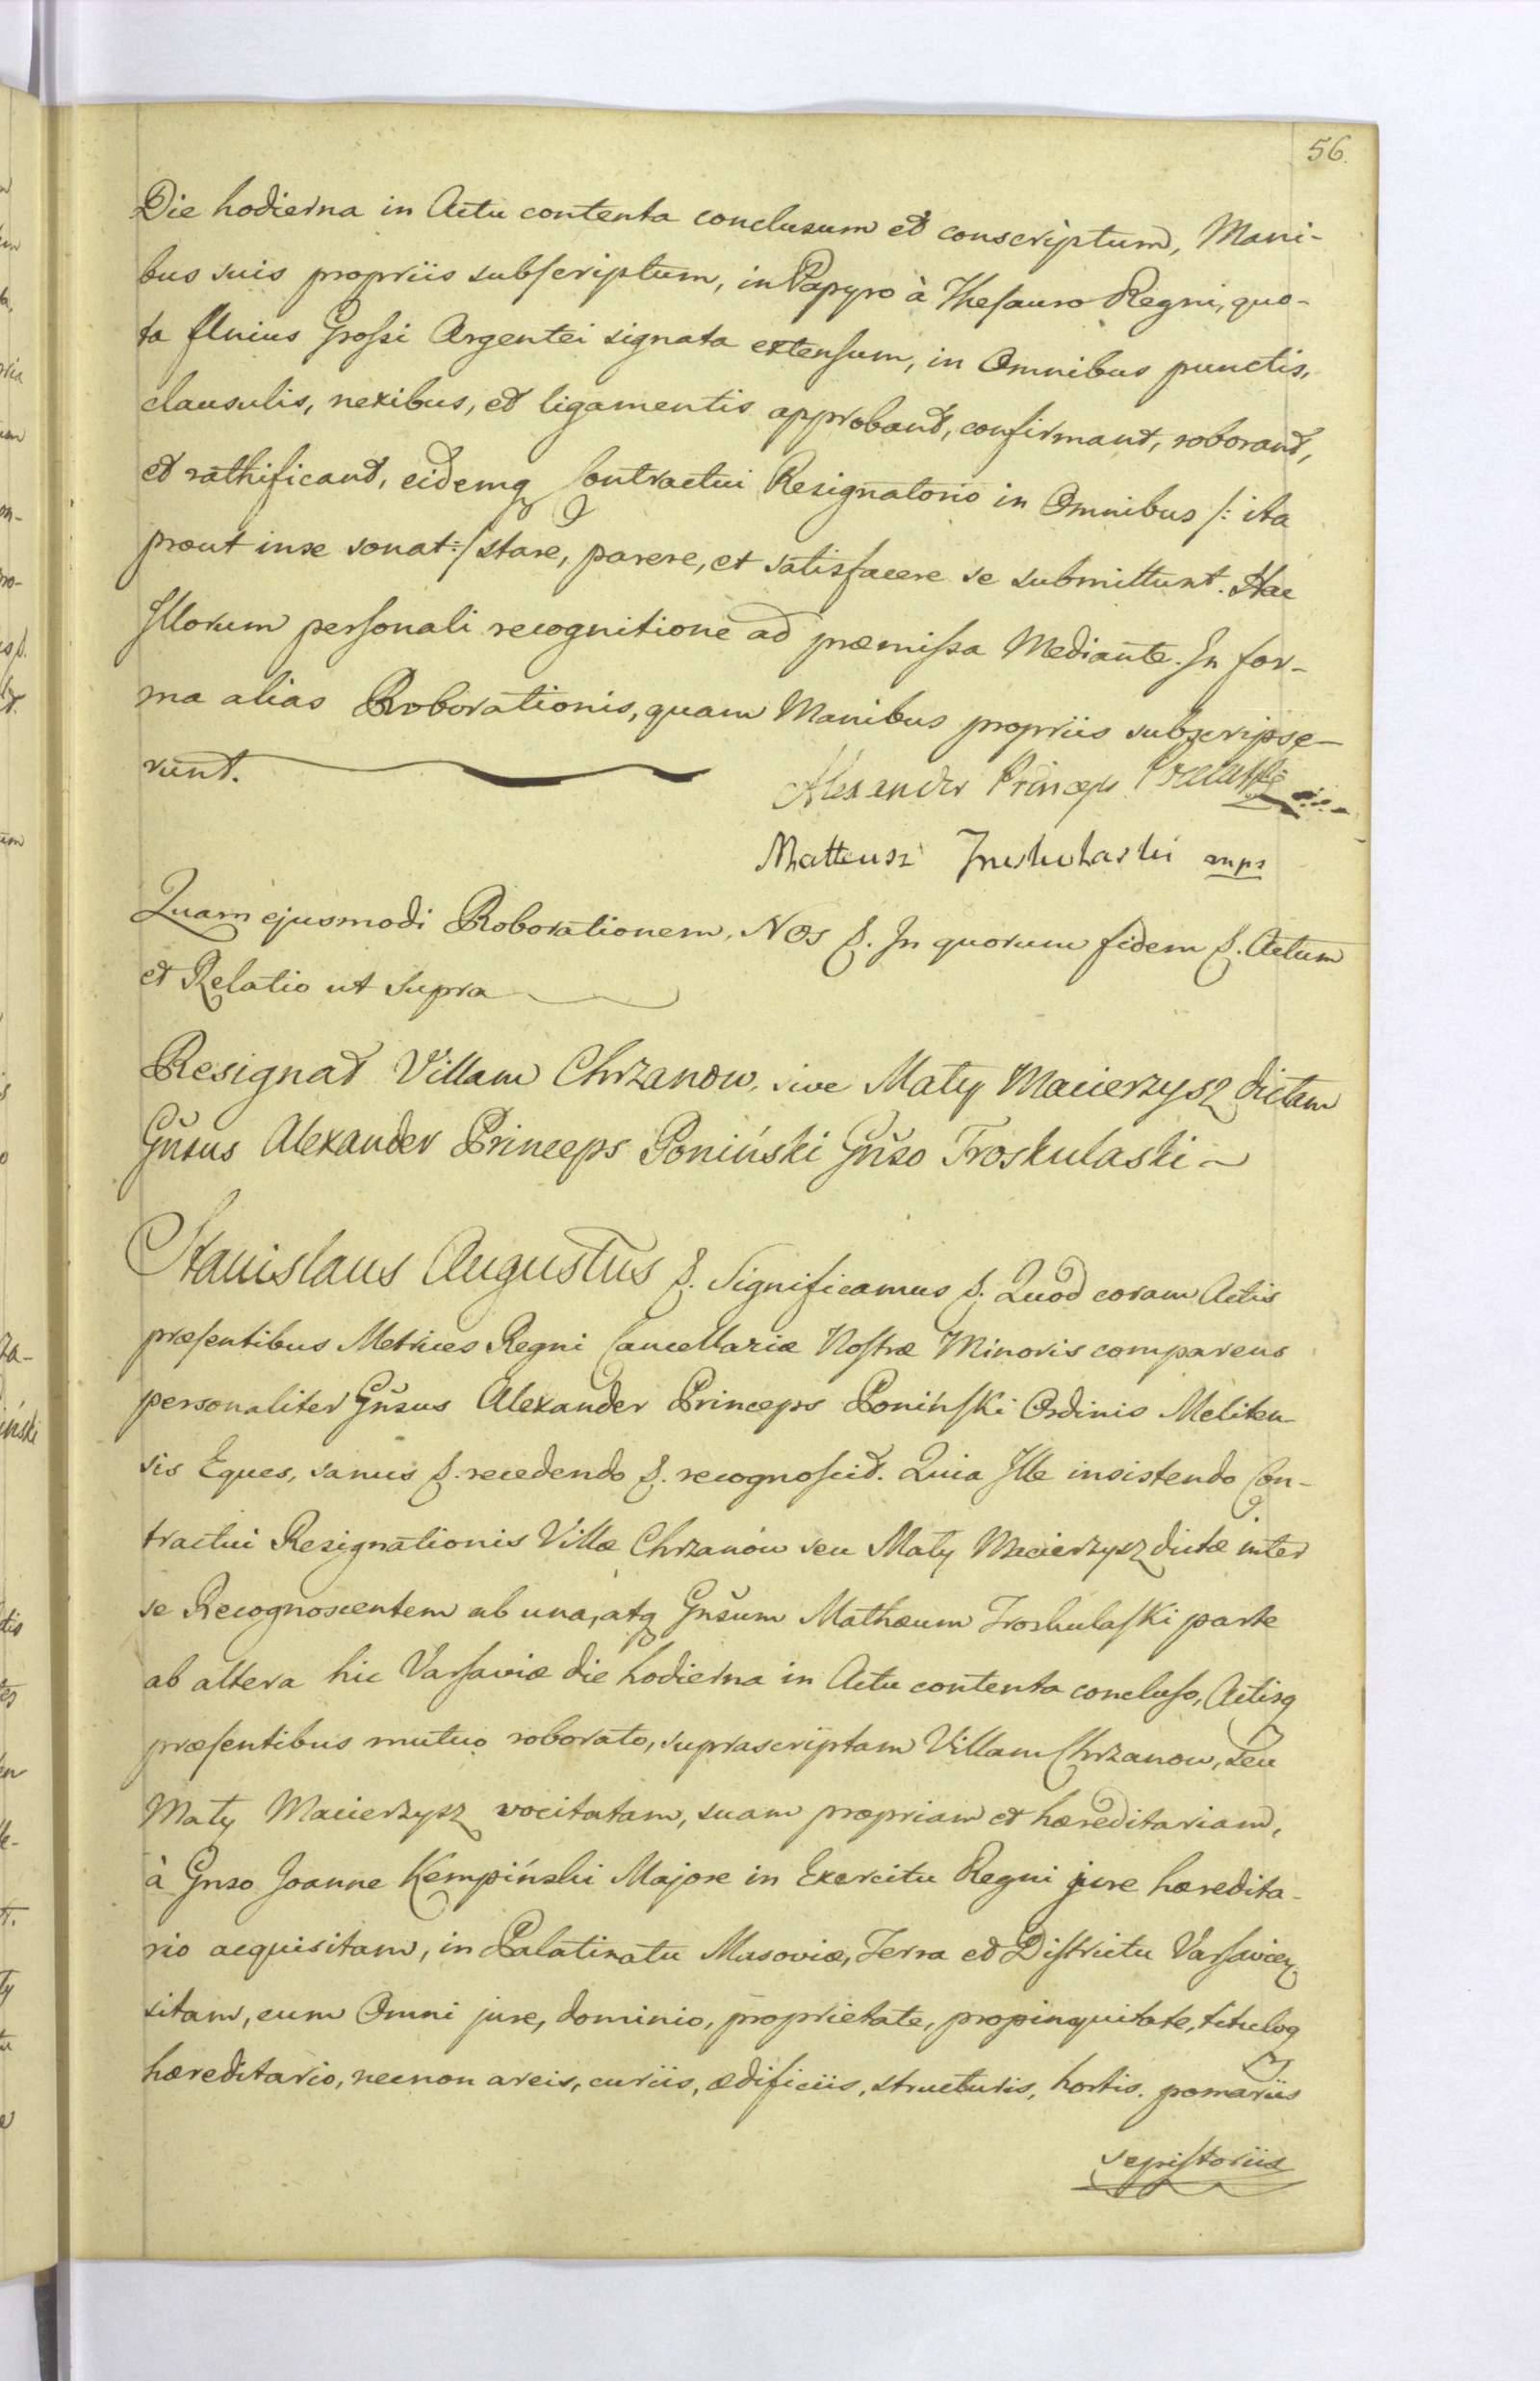 56.
Die hodierna in Actu contenta conclusum et conscriptum, Mani-
bus suis propriis subscriptum, in Papyro à Thesauro Regni, quo-
ta Unius Grossi Argentei signata extensum, in Omnibus punctis,
clausulis, nexibus, et ligamentis approbant, confirmant, roborant,
et rathificant, eidemq Contractui Resignatorio in Omnibus /: ita
prout in se sonat :/ stare, parere, et satisfacere se submittunt. Hac
Illorum personali recognitione ad præmissa Mediante. In for-
ma alias Roborationis, quam Manibus propriis subscripse-
runt.
Alexander Princeps
Matteusz mps
Quam ejusmodi Roborationem, Nos &. In quorum fidem &. Actum
et Relatio ut Supra
Resignat Villam Chrzanow, sive Maty Macierzysz dictam
Gn̄sus Alexander Princeps Poniński Gn̄so Troskulaski ~
Stanislaus Augustus &. Significamus &. Quod coram Actis
præsentibus Metrices Regni Cancellariæ Nostræ Minoris comparens
personaliter Gn̄sus Alexander Princeps Poniński Ordinis Meliten-
sis Eques, sanus &. recedendo &. recognoscit. Quia Ille insistendo Con-
tractui Resignationis Villæ Chrzanów seu Maty Macierzysz dictæ inter
se Recognoscentem ab una, atq Gn̄sum Mathæum Troskulaski parte
ab altera hic Varsaviæ die hodierna in Actu contenta concluso, Actisq
præsentibus mutuo roborato, suprascriptam Villam Chrzanow, seu
Maty Macierzysz vocitatam, suam propriam et hæreditariam,
à Gnso Joanne Kempiński Majore in Exercitu Regni jure hæredita-
rio acquisitam, in Palatinatu Masoviæ, Terra et Districtu Varsavien.
sitam, cum Omni jure, dominio, proprietate, propinquitate, tituloq
hæreditario, necnon areis, curiis, ædificiis, structuris, hortis. pomariis
sepistoriis